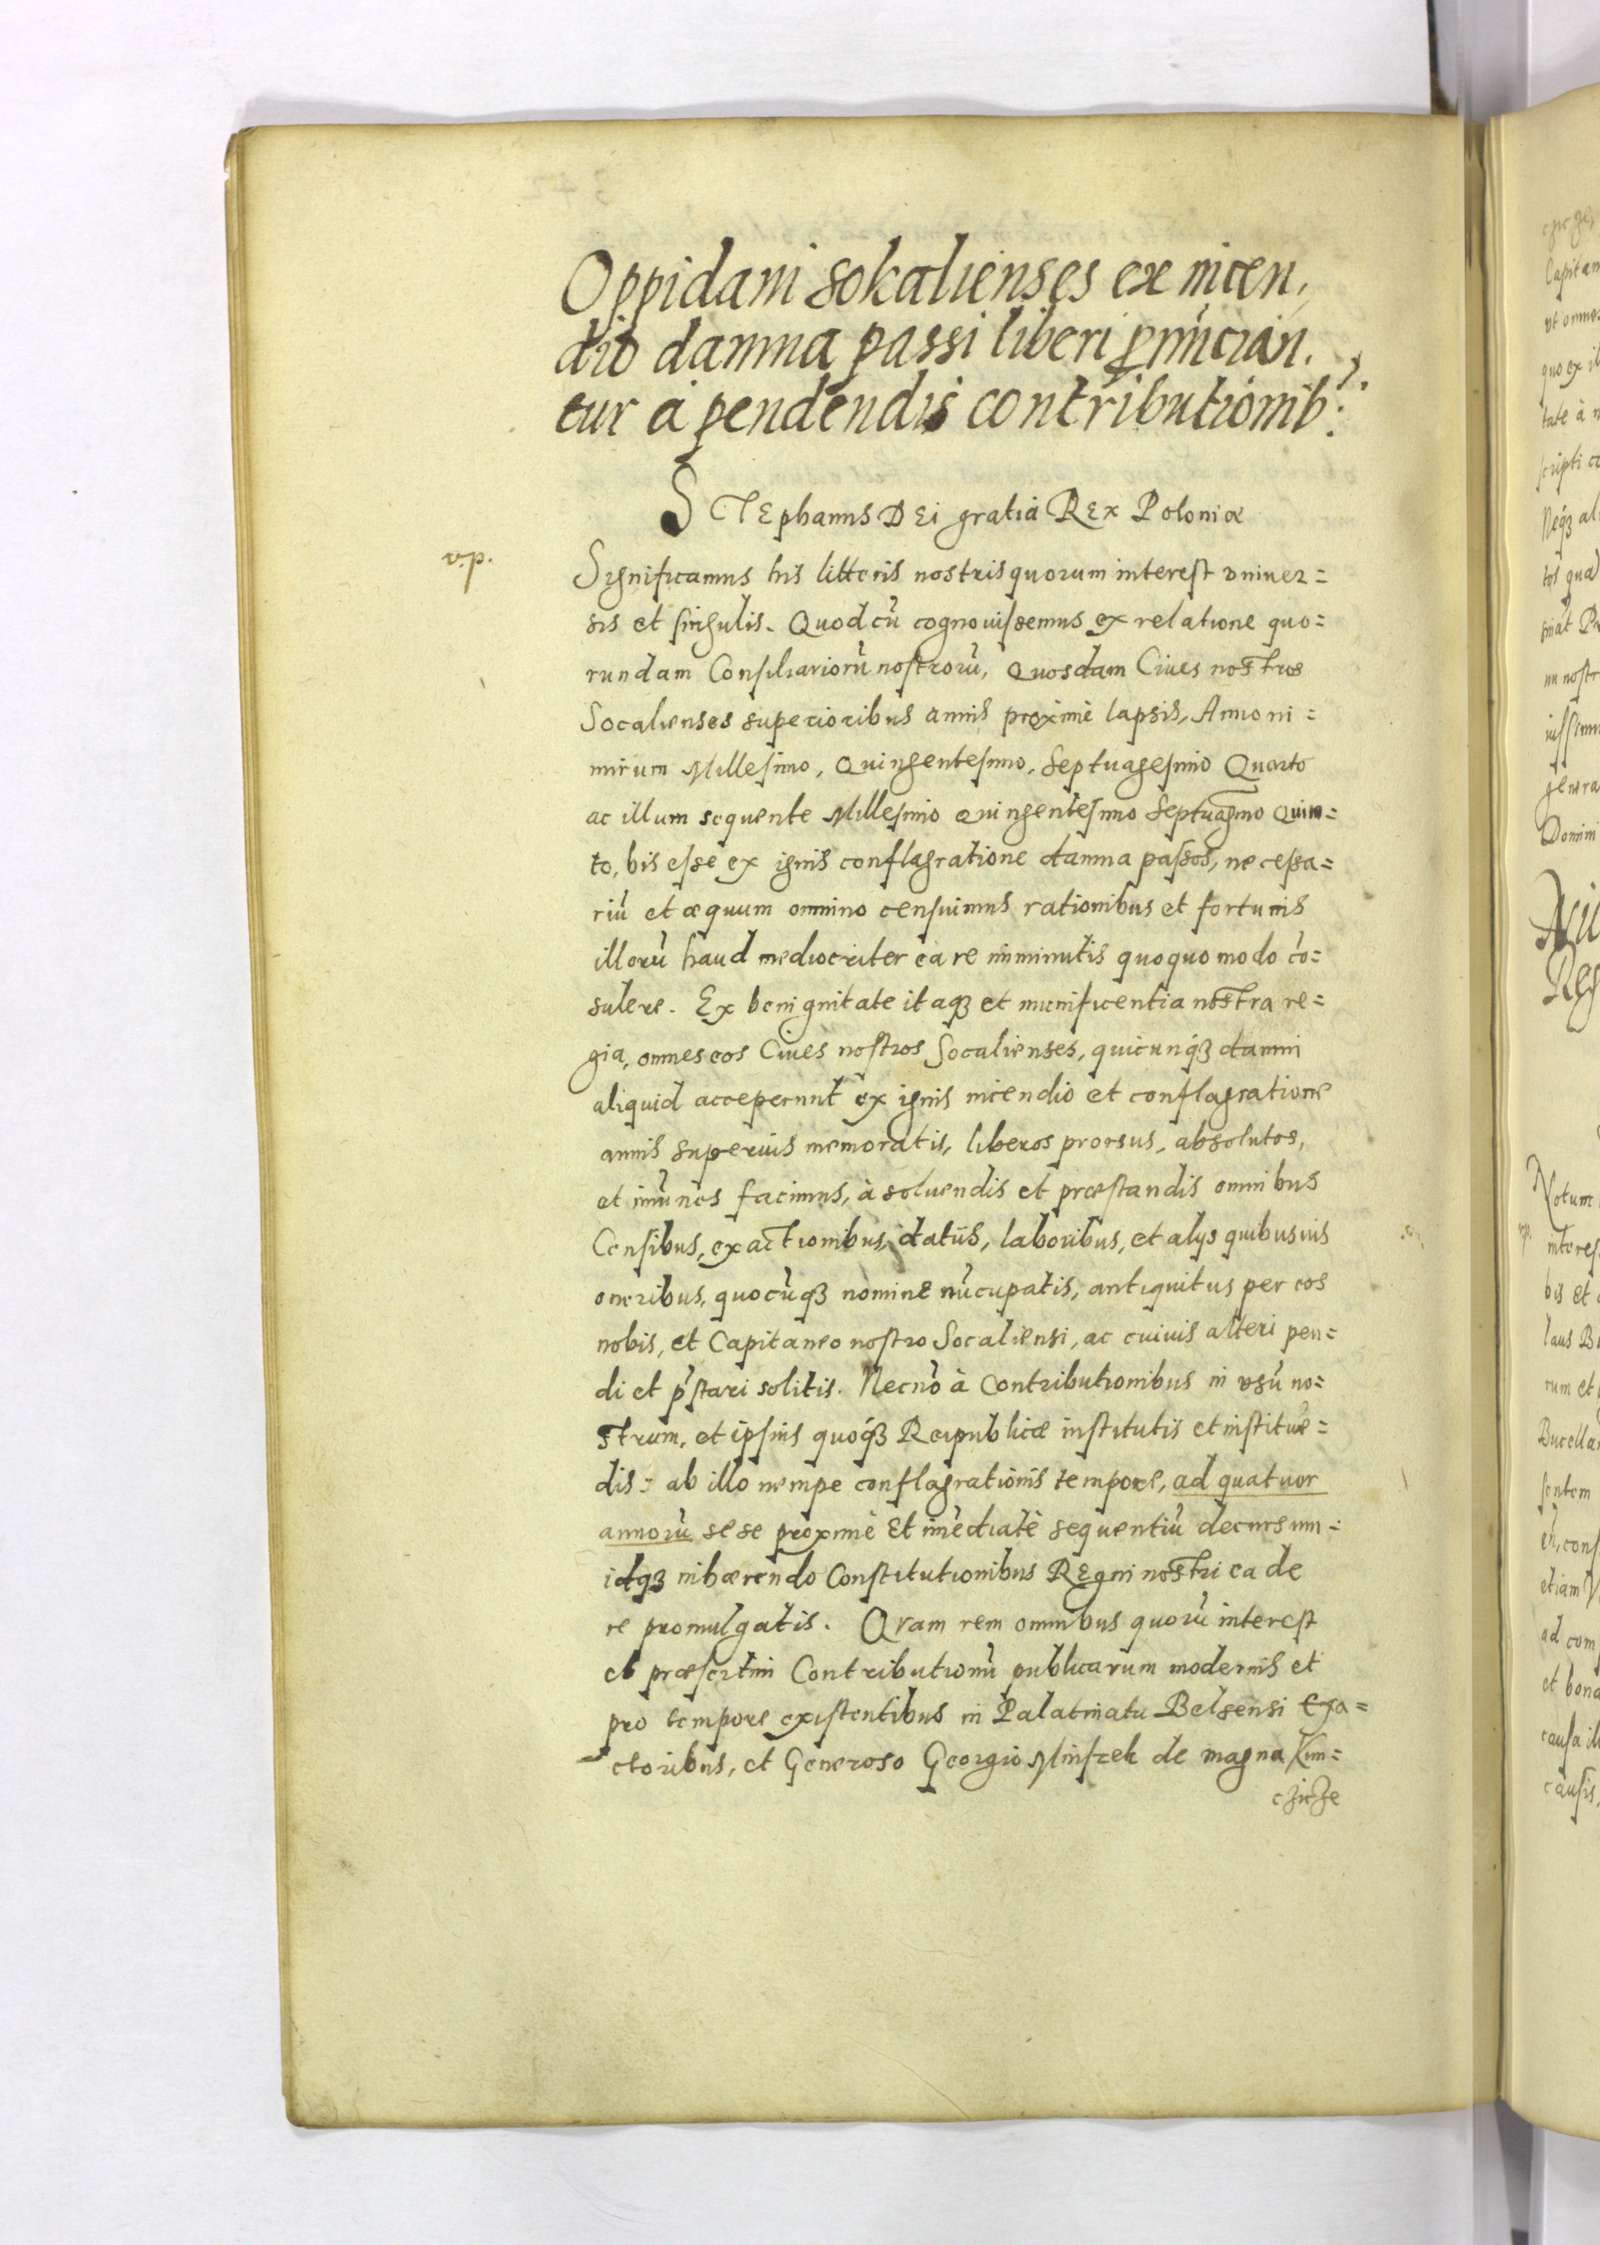 Oppidani Sokalienses ex incen,
dio damna passi liberi pnūcian.
tur à pendendis contributionib:
STEphanus DEi gratia REx Poloniæ
v.p.
Significamus his litteris nostris quorum interest vniuer=
sis et singulis. Quod cū cognouissemus ex relatione quo=
rundam Consiliariorū nostrorū, Quosdam Ciues nostros
Socalienses superioribus annis proximè lapsis, Anno ni=
mirum Millesimo, Quingentesimo, Septuagesimo Quarto
ac illum sequente Millesimo Quingentesimo Septuagmo Quin=
to, bis esse ex ignis conflagratione damna passos, necessa=
riū et æquum omnino censuimus rationibus et fortunis
illorū haud mediocriter ea re imminutis quoquo modo cō=
sulere. Ex benignitate itaqȝ et munificentia nostra re=
gia, omnes eos Ciues nostros Socalienses, quicunqȝ damni
aliquid acceperunt ex ignis incendio et conflagratione
annis superius memoratis, liberos prorsus, absolutos,
et imūnes facimus, à soluendis et præstandis omnibus
Censibus, exactionibus, datiis, laboribus, et alys quibusuis
oneribus, quocūqȝ nomine nūcupatis, antiquitus per eos
nobis, et Capitaneo nostro Socaliensi, ac cuiuis alteri pen=
di et pstari solitis. Necnō à Contributionibus in vsū no=
strum, et ipsius quoqȝ Reipublicæ institutis et instituē=
dis: ab illo nempe conflagrationis tempore, ad quatuor
annorū sese proximè Et imēdiatè sequentiū decursum=
idqȝ inhærendo Constitutionibus REgni nostri ea de
re promulgatis. Qvam rem omnibus quorū interest
et præsertim Contributionū publicarum modernis et
pro tempore existentibus in Palatinatu Belsensi Exa=
ctoribus, et Generoso Georgio Mniszek de magna Kun=
czicze